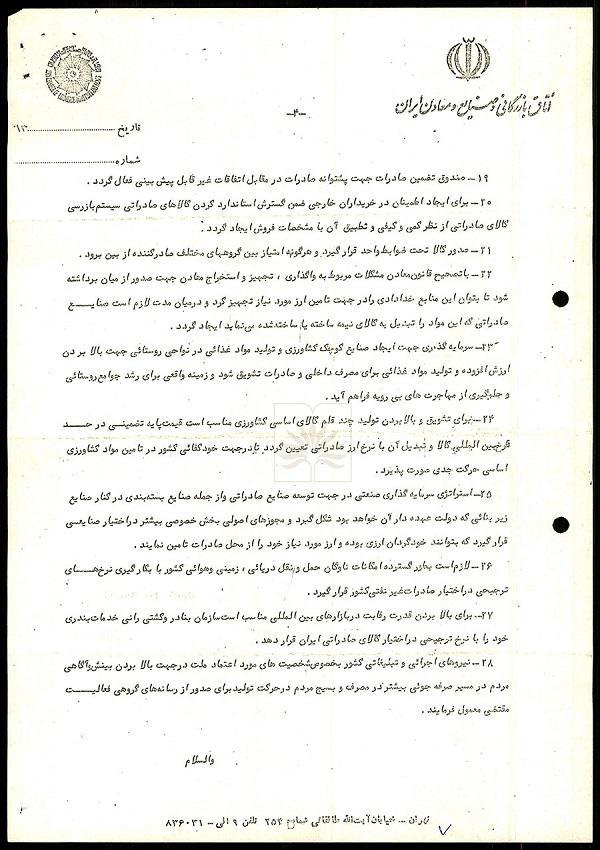 اتاق بازرگانی و صنایع و معادن ایران
-۴-
تاریخ
۱۳
شماره
۱۹- صندوق تضمین صادرات جهت پشتوانه صادرات در مقابل اتفاقات غیر قابل پیش بینی فعال گردد .
۲۰- برای ایجاد اطمینان در خریداران خارجی ضمن گسترش استاندارد کردن کالاهای صادراتی سیستم بازرسی
کالای صادراتی از نظر کمی و کیفی و تطبیق آن با مشخصات فروش ایجاد گردد .
۲۱- صدور کالا تحت ضوابط واحد قرار گیرد و هرگونه امتیاز بین گروههای مختلف صادرکننده از بین برود .
۲۲- با تصحیح قانون معادن مشکلات مربوط به واگذاری ، تجهیز و استخراج معادن جهت صدور از میان برداشته
شود تا بتوان این منابع خدادادی را در جهت تامین ارز مورد نیاز تجهیز کرد و در میان مدت لازم است صنایع
صادراتی که این مواد را تبدیل به کالای نیمه ساخته یا ساخته شده می نماید ایجاد گردد .
۲۳- سرمایه گذاری جهت ایجاد صنایع کوچک کشاورزی و تولید مواد غذائی در نواحی روستائی جهت بالا بردن
ارزش افزوده و تولید مواد غذائی برای مصرف داخلی و صادرات تشویق شود و زمینه واقعی برای رشد جوامع روستائی
و جلوگیری از مهاجرت های بی رویه فراهم آید .
۲۴- برای تشویق و بالا بردن تولید چند قلم کالای اساسی کشاورزی مناسب است قیمت پایه تضمینی در حد
نرخ بین المللی کالا و تبدیل آن با نرخ ارز صادراتی تعیین گردد تا در جهت خودکفائی کشور در تامین مواد کشاورزی
اساسی حرکت جدی صورت پذیرد .
۲۵- استراتژی سرمایه گذاری صنعتی در جهت توسعه صنایع صادراتی و از جمله صنایع بسته بندی در کنار صنایع
زیر بنائی که دولت عهده دار آن خواهد بود شکل گیرد و مجوزهای اصولی بخش خصوصی بیشتر در اختیار صنایعی
قرار گیرد که بتوانند خودگردان ارزی بوده و ارز مورد نیاز خود را از محل صادرات تامین نمایند .
۲۶- لازم است بطور گسترده امکانات ناوگان حمل و نقل دریائی ، زمینی و هوائی کشور با بکار گیری نرخهای
ترجیحی در اختیار صادرات غیر نفتی کشور قرار گیرد .
۲۷- برای بالا بردن قدرت رقابت در بازارهای بین المللی مناسب است سازمان بنادر و کشتی رانی خدمات بندری
خود را با نرخ ترجیحی در اختیار کالای صادراتی ایران قرار دهد .
۲۸- نیروهای اجرائی و تبلیغاتی کشور بخصوص شخصیت های مورد اعتماد ملت در جهت بالا بردن بینش و آگاهی
مردم در مسیر صرفه جوئی بیشتر در مصرف و بسیج مردم در حرکت تولید برای صدور از رسانه های گروهی فعالیت
مقتضی معمول فرمایند .
والسلام
تهران - خیابان آیت الله طالقانی شماره ۲۵۴ تلفن ۹ الی - ۸۳۶۰۳۱